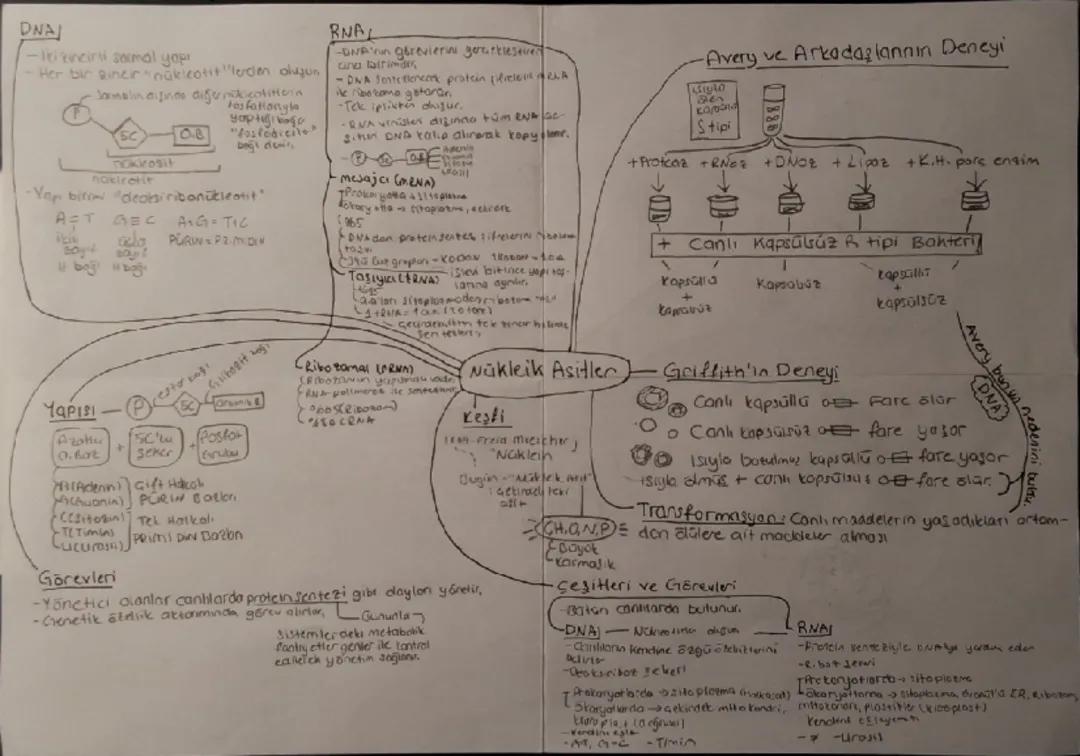 DNA
- İki zincirli sarmal yapı
- Her bir zincir "nükleotit"lerden oluşur
Sarmalın dışında diğer nükleotitlerin
fosfatlarıyla
yaptığı bağa
"fosfodiester"
bağı denir.
P
5C
O.B
nükleosit
nükleotit
- Yapı birimi "deoksiribonükleotit"
A=T G≡C A+G=T+C
ikili üçlü PÜRİN=PRİMİDİN
bağı bağı
H bağı H bağı
RNA
- DNA'nın görevlerini gerçekleştiren
ana birimdir.
- DNA sentezlenecek protein şifrelerini mRNA
ile ribozoma götürür.
- Tek iplikten oluşur.
- RNA virüsleri dışında tüm RNA
DNA kalıp alınarak kopyalanır.
P 5C O.B
mesajcı (mRNA)
Prokaryotta → sitoplazma
Ökaryotta → sitoplazma, çekirdek
%5
DNA'dan protein sentez şifrelerini ribozoma
taşır
Üçlü baz grupları → KODON 1kodon = 1a.a
Taşıyıcı (tRNA)
işlevi bitince yapı taş-
larına ayrılır.
a.a'ları sitoplazmadan ribozoma
1 tRNA = 1a.a
Ribozomal (rRNA)
Ribozomun yapısına
RNA polimeraz ile sentezlenir
Nükleik Asitler
Avery ve Arkadaşlarının Deneyi
ısıyla
ölen
kapsüllü
S tipi
+Proteaz +RNaz +DNaz +Lipaz +K.H. parç enzim
+ Canlı Kapsülsüz R tipi Bakteri
Kapsüllü
+
Kapsülsüz
Kapsülsüz
Kapsüllü
+
Kapsülsüz
Avery bunun nedenini buldu.
DNA
Griffith'in Deneyi
Canlı kapsüllü → Fare ölür
Canlı kapsülsüz → fare yaşar
Isıyla öldürülmüş kapsüllü → fare yaşar
Isıyla ölmüş + canlı kapsülsüz → fare ölür.
Transformasyon: Canlı maddelerin yaşadıkları ortam-
dan ölülere ait maddeler alması
Yapısı
P ester bağı 5C Glikozit bağı Organik B
Azotlu
O. Baz
+
5C'lu
şeker
+
Fosfat
Grubu
A (Adenin)
G (Guanin)
Çift Halkalı
PÜRİN Bazları
C (Sitozin)
T (Timin)
U (Urasil)
Tek Halkalı
PRİMİDİN Bazları
Keşfi
Miescher
"Nüklein"
Bugün - "Nükleik Asit"
C,H,O,N,P
Büyük
Karmaşık
Görevleri
- Yönetici olanlar canlılarda protein sentezi gibi olayları yönetir.
- Genetik özellik aktarımında görev alırlar.
Bununla
sistemlerdeki metabolik
faaliyetler genler ile kontrol
edilerek yönetim sağlanır.
Çeşitleri ve Görevleri
- Bütün canlılarda bulunur.
DNA
- Canlıların kendine özgü özelliklerini
belirler
- Deoksiriboz şekeri
Prokaryotlarda → sitoplazma (halkasal)
Ökaryotlarda → çekirdek, mitokondri,
kloroplast
- Kendini eşler
- A=T, G=C - Timin
RNA
- Protein senteziyle DNA'ya yardım eder
- Riboz şekeri
Prokaryotlarda → sitoplazma
Ökaryotlarda → sitoplazma, Granüllü ER, Ribozom,
mitokondri, plastitler (kloroplast)
Kendini eşleyemez
- ≠ - Urasil